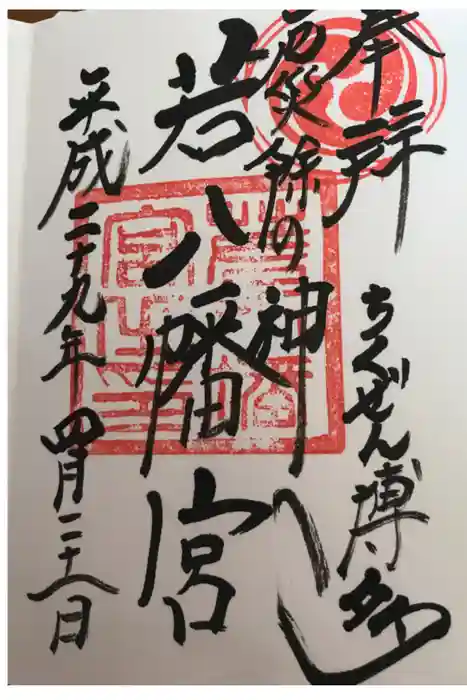 奉拜
ちくぜん博多
厄災除の神
若八幡宮
平成二十九年四月二十八日